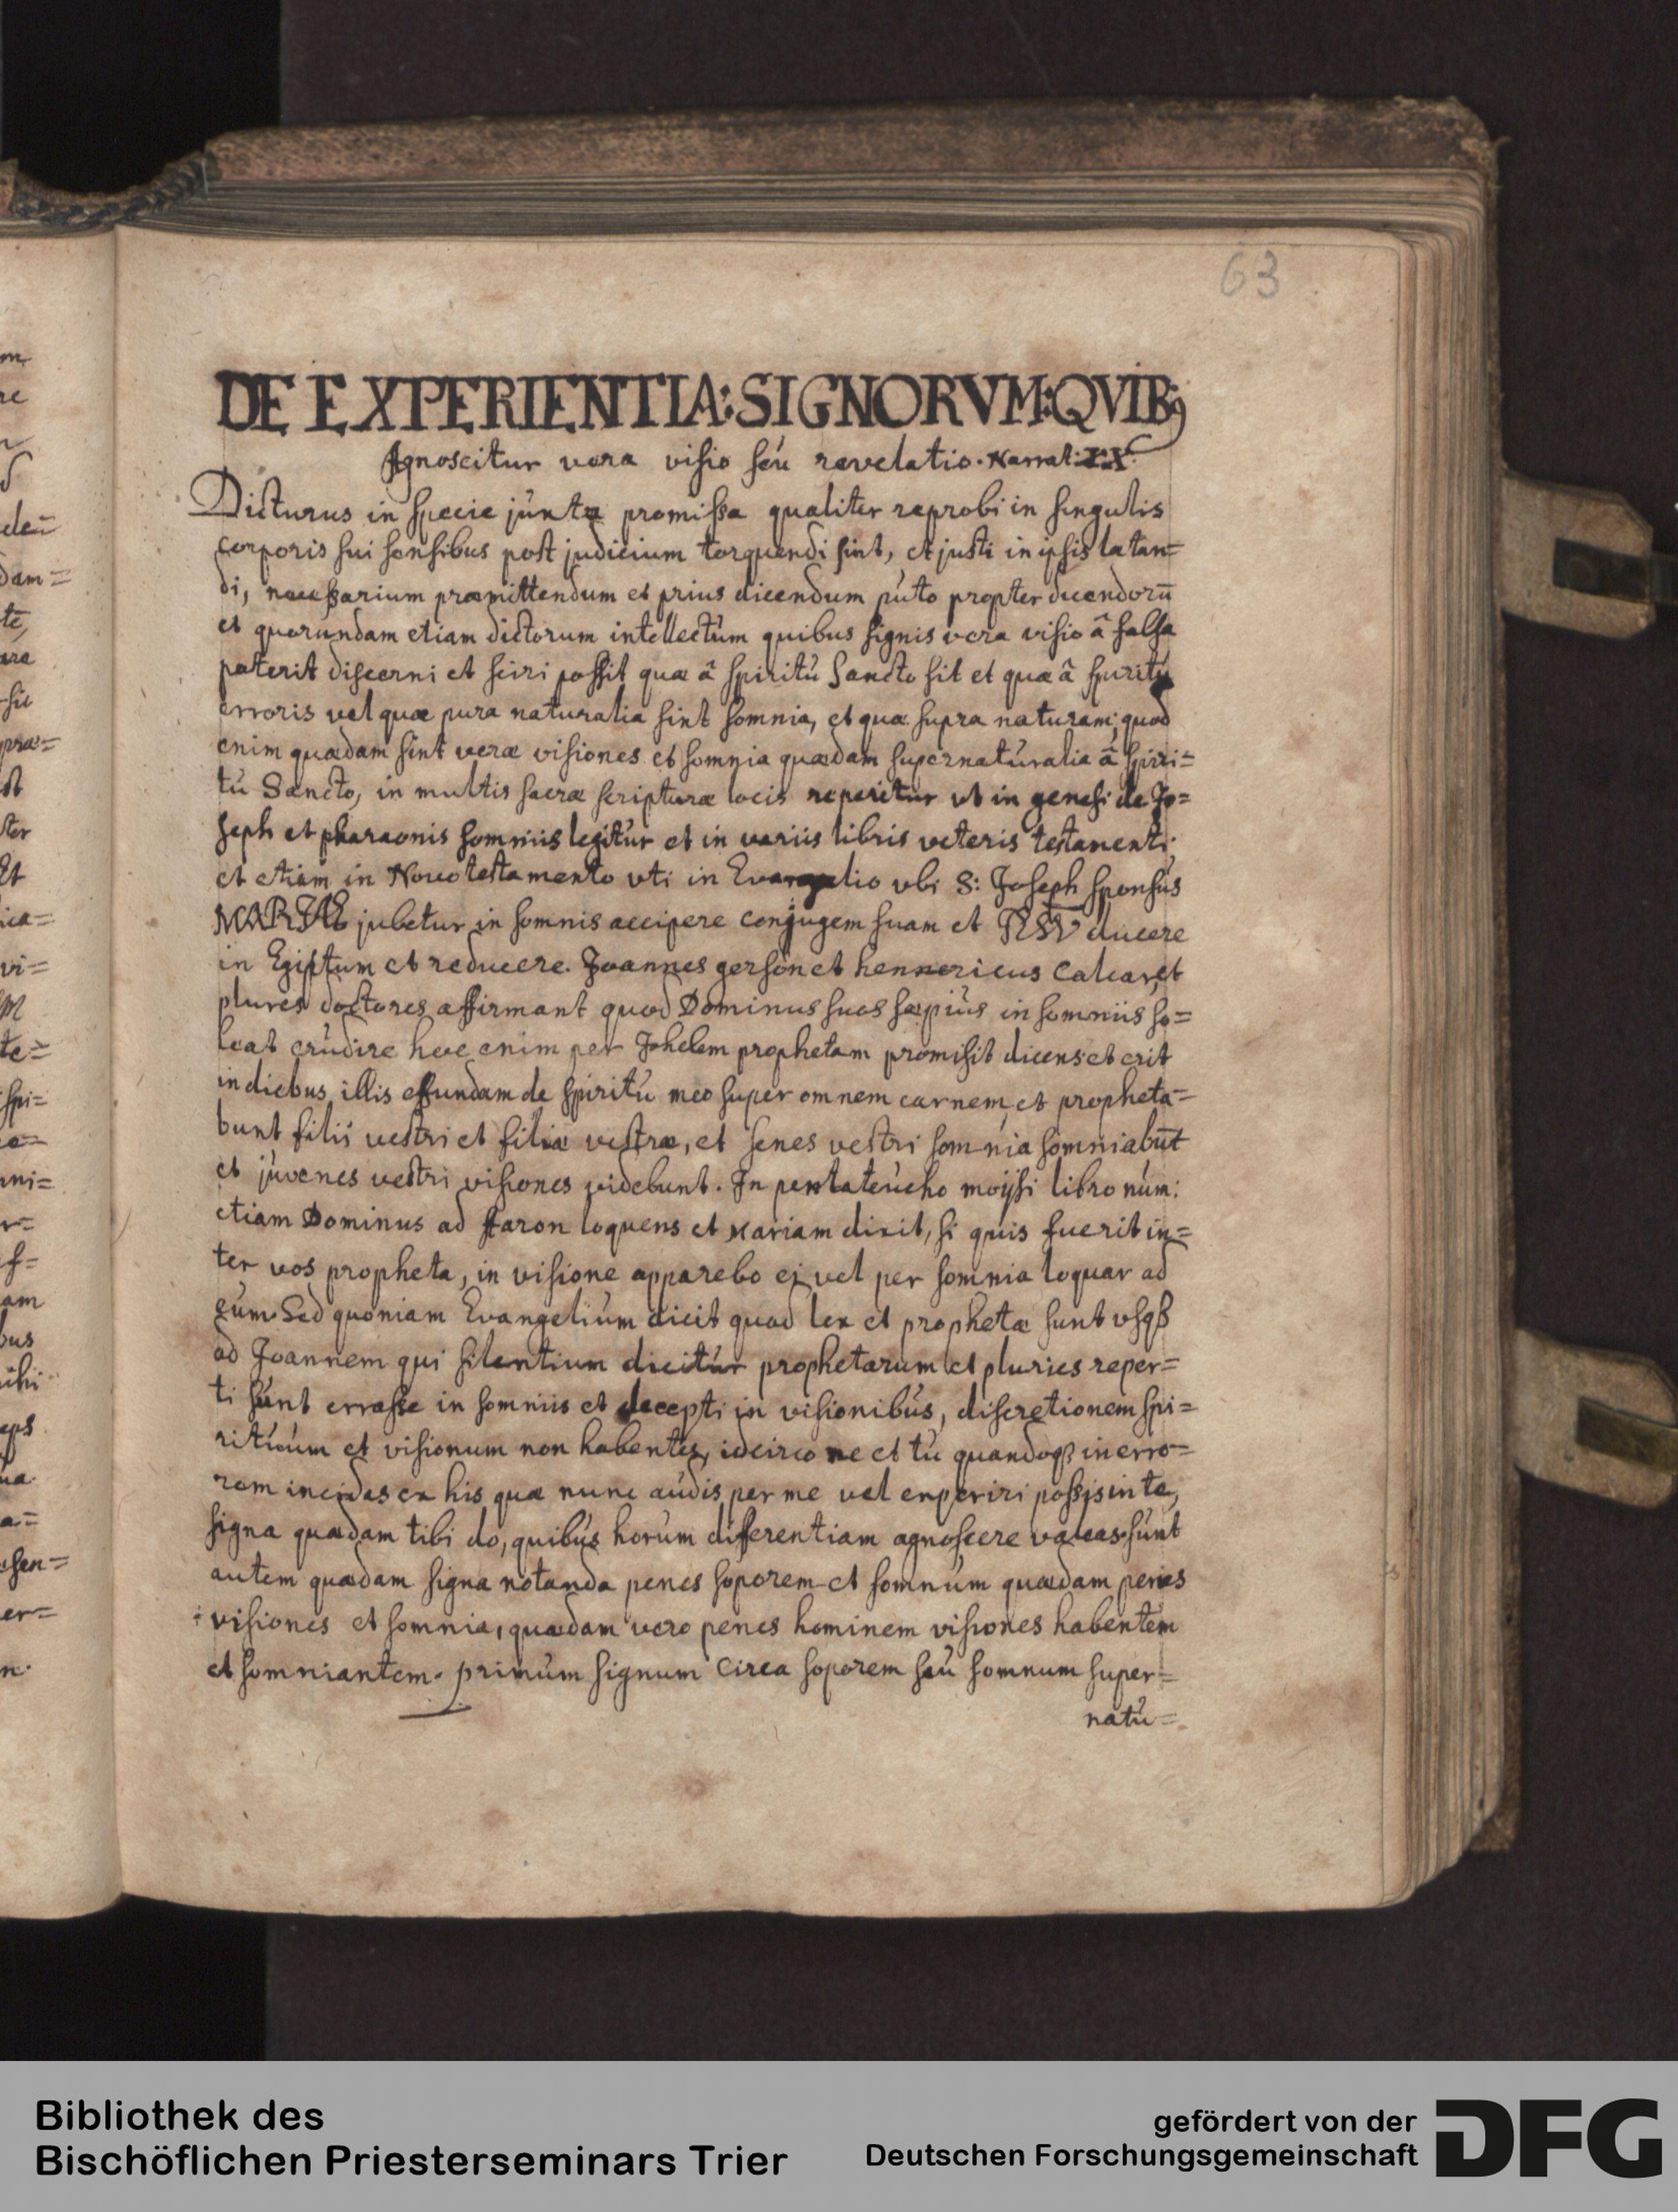 63
DE EXPERIENTIA: SIGNORVM: QVIB9
Agnoscitur vera visio seu revelatio. Narrat: IX.
Dicturus in specie juxta promissa qualiter reprobi in singulis
corporis sui sensibus post judicium torquendi sint, et justi in ipsis lætan=
di, necessarium præmittendum et prius dicendum puto propter dicendorū
et quorundam etiam dictorum intellectum quibus signis vera visio â falsa
poterit discerni et sciri possit quæ â spiritu Sancto sit et quæ â spiritu
erroris vel quæ pura naturalia sint somnia, et quæ supra naturam; quod
enim quædam sint veræ visiones et somnia quædam supernaturalia â spiri=
tu Sancto, in multis sacræ scripturæ locis reperitur vt in genesi de Jo=
seph et pharaonis somniis legitur et in variis libris veteris testamenti.
et etiam in Novo testamento vti in Evangelio vbi S: Joseph sponsus
MARIAE jubetur in somnis accipere conjugem suam et JESV ducere
in Egiptum et reducere. Joannes gerson et hennericus Calcar, et
plures doctores affirmant quod Dominus suos sæpius in somniis so=
leat erudire hoc enim per Johelem prophetam promisit dicens et erit
in diebus illis effundam de spiritu meo super omnem carnem, et propheta=
bunt filii vestri et filiæ vestræ, et senes vestri somnia somniabūt
et juvenes vestri visiones videbunt. In pentateucho moijsi libro num:
etiam Dominus ad Aaron loquens et Mariam dixit, si quis fuerit in=
ter vos propheta, in visione apparebo ei vel per somnia loquar ad
eum. Sed quoniam Evangelium dicit quod lex et prophetæ sunt vsqß
ad Joannem qui silentium dicitur prophetarum et pluries reper=
ti sunt errasse in somniis et decepti in visionibus, discretionem spi=
rituum et visionum non habentes, idcirco ne et tu quandoqß in erro=
rem incidas ex his quæ nunc audis per me vel experiri possis in te,
signa quædam tibi do, quibus horum differentiam agnoscere valeas. sunt
autem quædam signa notanda penes soporem et somnum quædam penes
visiones et somnia, quædam vero penes hominem visiones habentem
et somniantem. primum signum Circa soporem seu somnum super=
natu=
Bibliothek des
Bischöflichen Priesterseminars Trier
gefördert von der
Deutschen Forschungsgemeinschaft
DFG